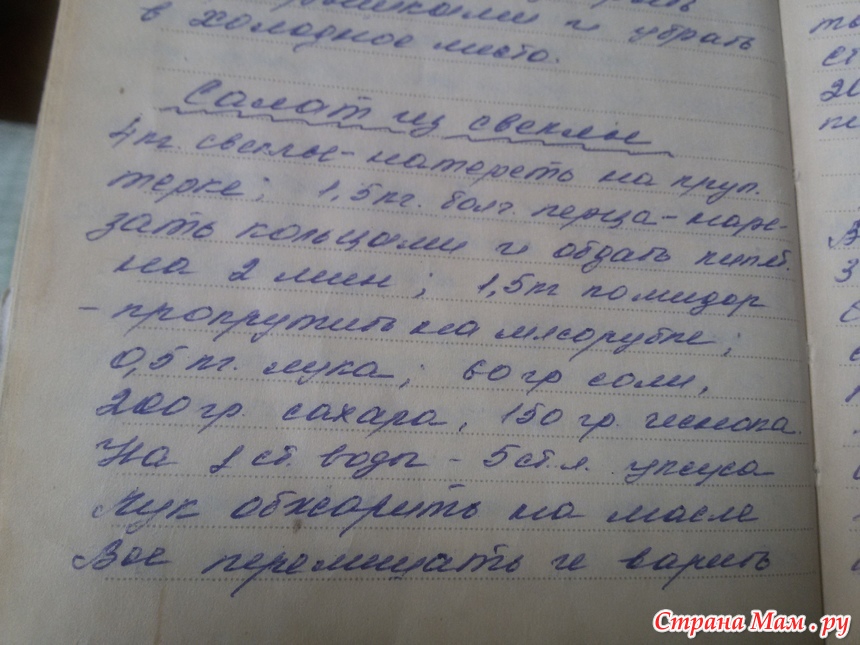 и убрать
в холодное место.
Салат из свеклы
4 кг. свеклы - натереть на круп.
терке; 1,5 кг. болг. перца - наре-
зать кольцами и обдать кипят.
на 2 мин; 1,5 кг помидор
- прокрутить на мясорубке;
0,5 кг. лука; 60 гр соли,
200 гр. сахара, 150 гр. чеснока.
На 1 ст. воды - 5 ст. л. уксуса
Лук обжарить на масле
Все перемешать и варить
Страна Мам.ру